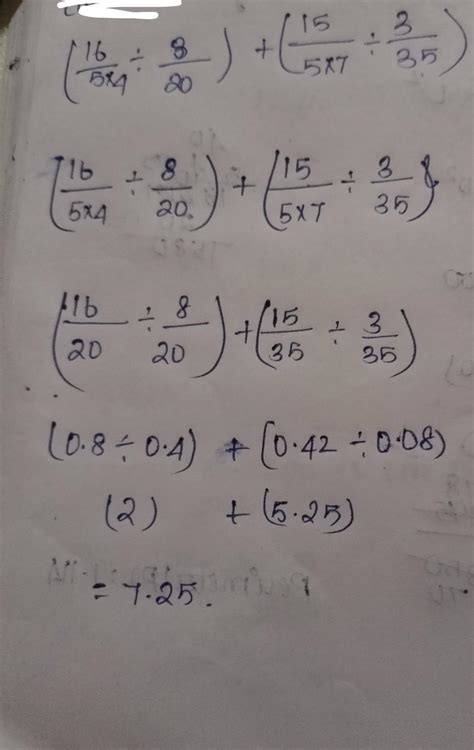 (16/5×4 ÷ 8/20) + (15/5×7 ÷ 3/35)
(16/5×4 ÷ 8/20.) + (15/5×7 ÷ 3/35)
(16/20 ÷ 8/20) + (15/35 ÷ 3/35)
(0.8 ÷ 0.4) + (0.42 ÷ 0.08)
(2) + (5.25)
= 7.25.